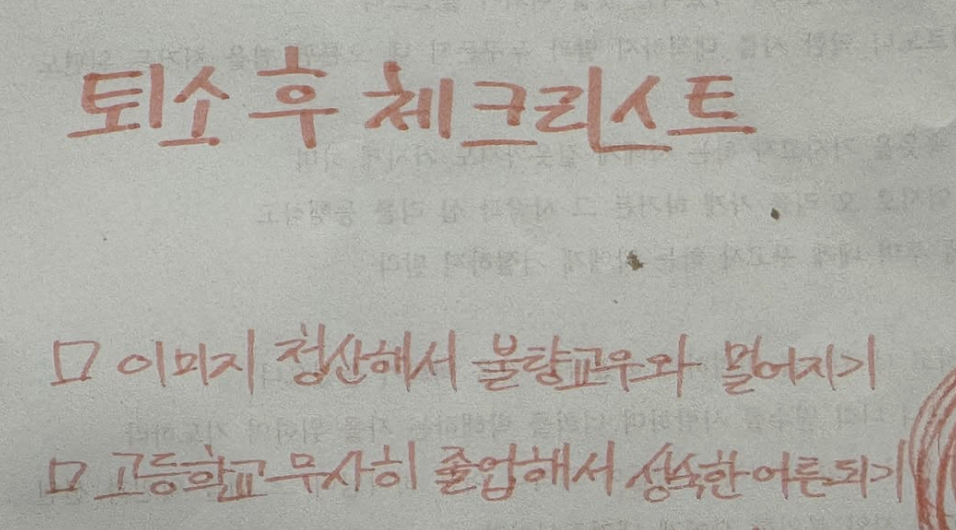 퇴소 후 체크리스트
□ 이미지 청산해서 불량교우와 멀어지기
□ 고등학교 무사히 졸업해서 성숙한 어른되기